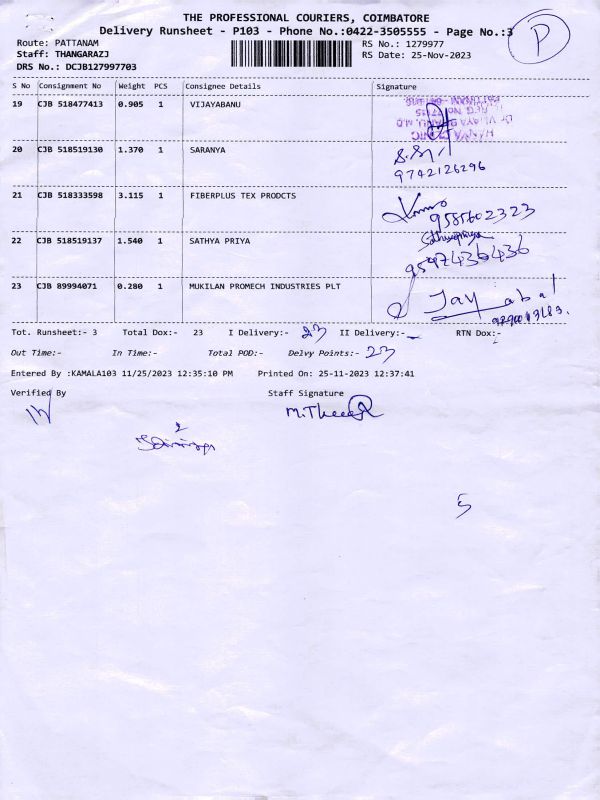 THE PROFESSIONAL COURIERS, COIMBATORE
Delivery Runsheet - P103 - Phone No.:0422-3505555 - Page No.:3
P
Route: PATTANAM RS No.: 1279977
Staff: THANGARAZJ RS Date: 25-Nov-2023
DRS No.: DCJB127997703
S No Consignment No Weight PCS Consignee Details Signature
19 CJB 518477413 0.905 1 VIJAYABANU
20 CJB 518519130 1.370 1 SARANYA
9742126296
21 CJB 518333598 3.115 1 FIBERPLUS TEX PRODCTS
9585602323
22 CJB 518519137 1.540 1 SATHYA PRIYA Sathyapriya
9597436436
23 CJB 89994071 0.280 1 MUKILAN PROMECH INDUSTRIES PLT
Jayabal
Tot. Runsheet:- 3 Total Dox:- 23 I Delivery:- 23 II Delivery:- RTN Dox:-
Out Time:- In Time:- Total POD:- Delvy Points:- 23
Entered By :KAMALA103 11/25/2023 12:35:10 PM Printed On: 25-11-2023 12:37:41
Verified By Staff Signature
5